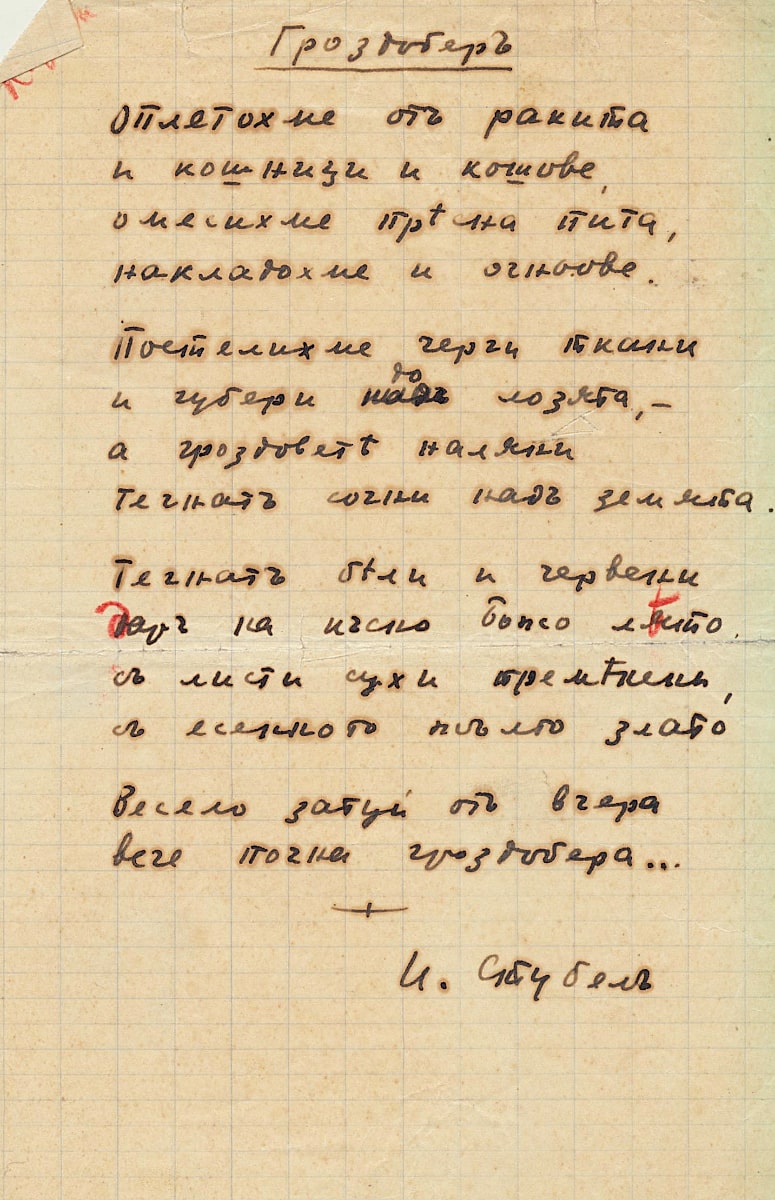 Гроздоберъ
Оплетохме отъ ракита
и кошници и кошове,
омесихме прѣсна пита,
накладохме и огньове.
Постелихме черги ткани
и губери до лозята, –
а гроздоветѣ наляни
тегнатъ сочни надъ земята.
Тегнатъ бѣли и червени
даръ на късно бопсо лѣто.
съ листи сухи премѣнени,
съ есенното жълто злато
Весело затуй отъ вчера
вече почна гроздобера...
И. Стубелъ